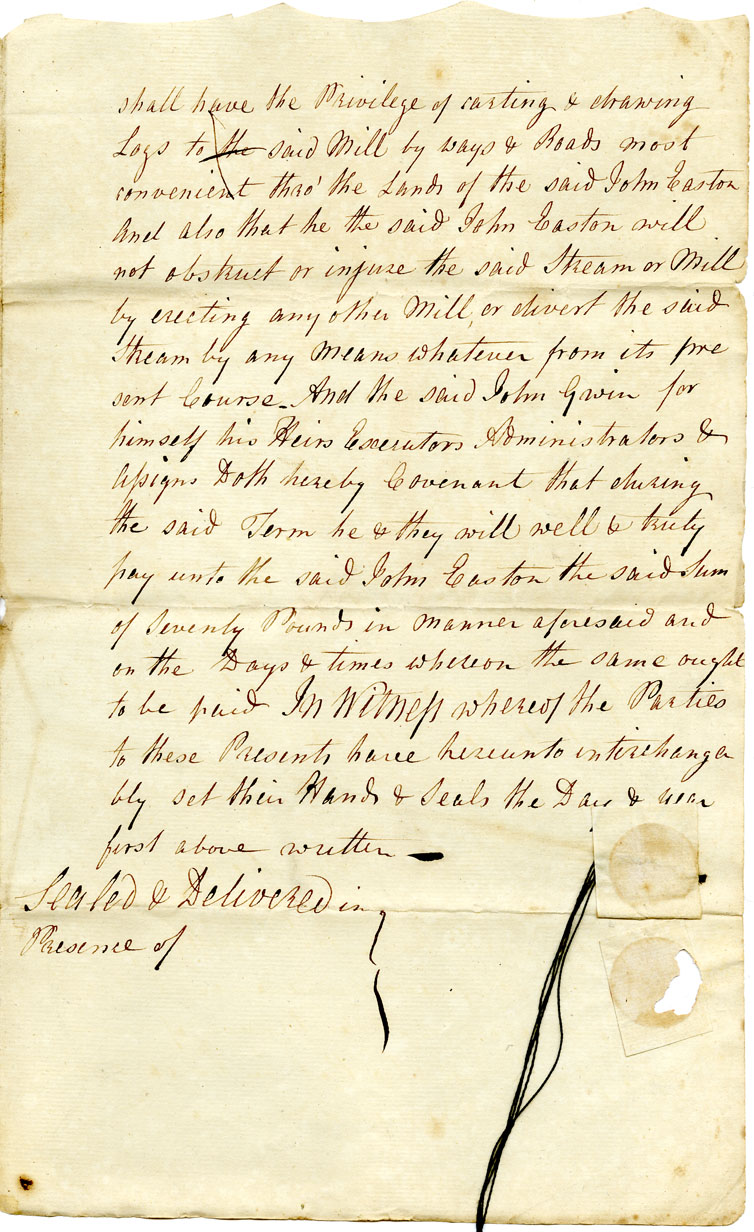 shall have the Privilege of carting & drawing
Logs to the said Mill by ways & Roads most
convenient thro' the Lands of the said John Easton
And also that he the said John Easton will
not obstruct or injure the said Stream or Mill
by erecting any other Mill, or divert the said
Stream by any Means whatever from its pre
sent Course - And the said John Gwin for
himself his Heirs Executors Administrators &
Assigns Doth hereby Covenant that during
the said Term he & they will well & truly
pay unto the said John Easton the said Sum
of Seventy Pounds in manner aforesaid and
on the Days & times whereon the same ought
to be paid In Witness whereof the Parties
to these Presents have hereunto interchangea
bly set their Hands & Seals the Day & year
first above written —
Sealed & Delivered in
Presence of